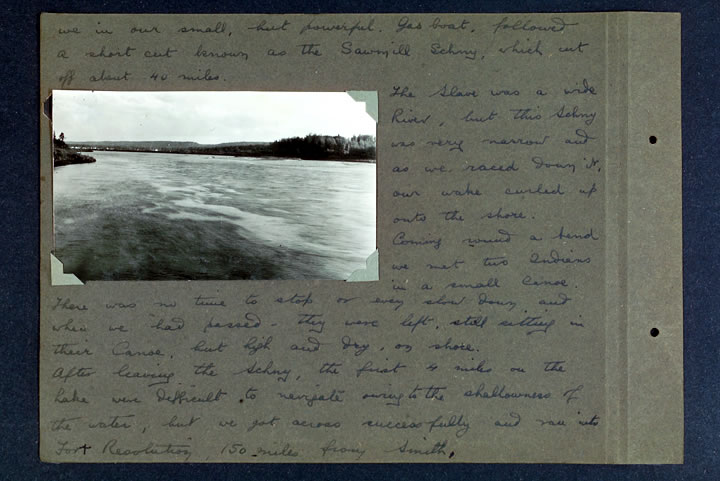 we in our small, but powerful. Gas boat, followed
a short cut known as the Sawmill Schny, which cut
off about 40 miles.
The Slave was a wide
River, but this Schny
was very narrow and
as we raced down it,
our wake curled up
onto the shore.
Coming round a bend
we met two Indians
in a small Canoe.
There was no time to stop or even slow down and
when we had passed - they were left, still sitting in
their Canoe, but high and dry, on shore.
After leaving the Schny, the first 4 miles on the
Lake were difficult to navigate owing to the shallowness of
the water, but we got across successfully and ran into
Fort Resolution, 150 miles from Smith.